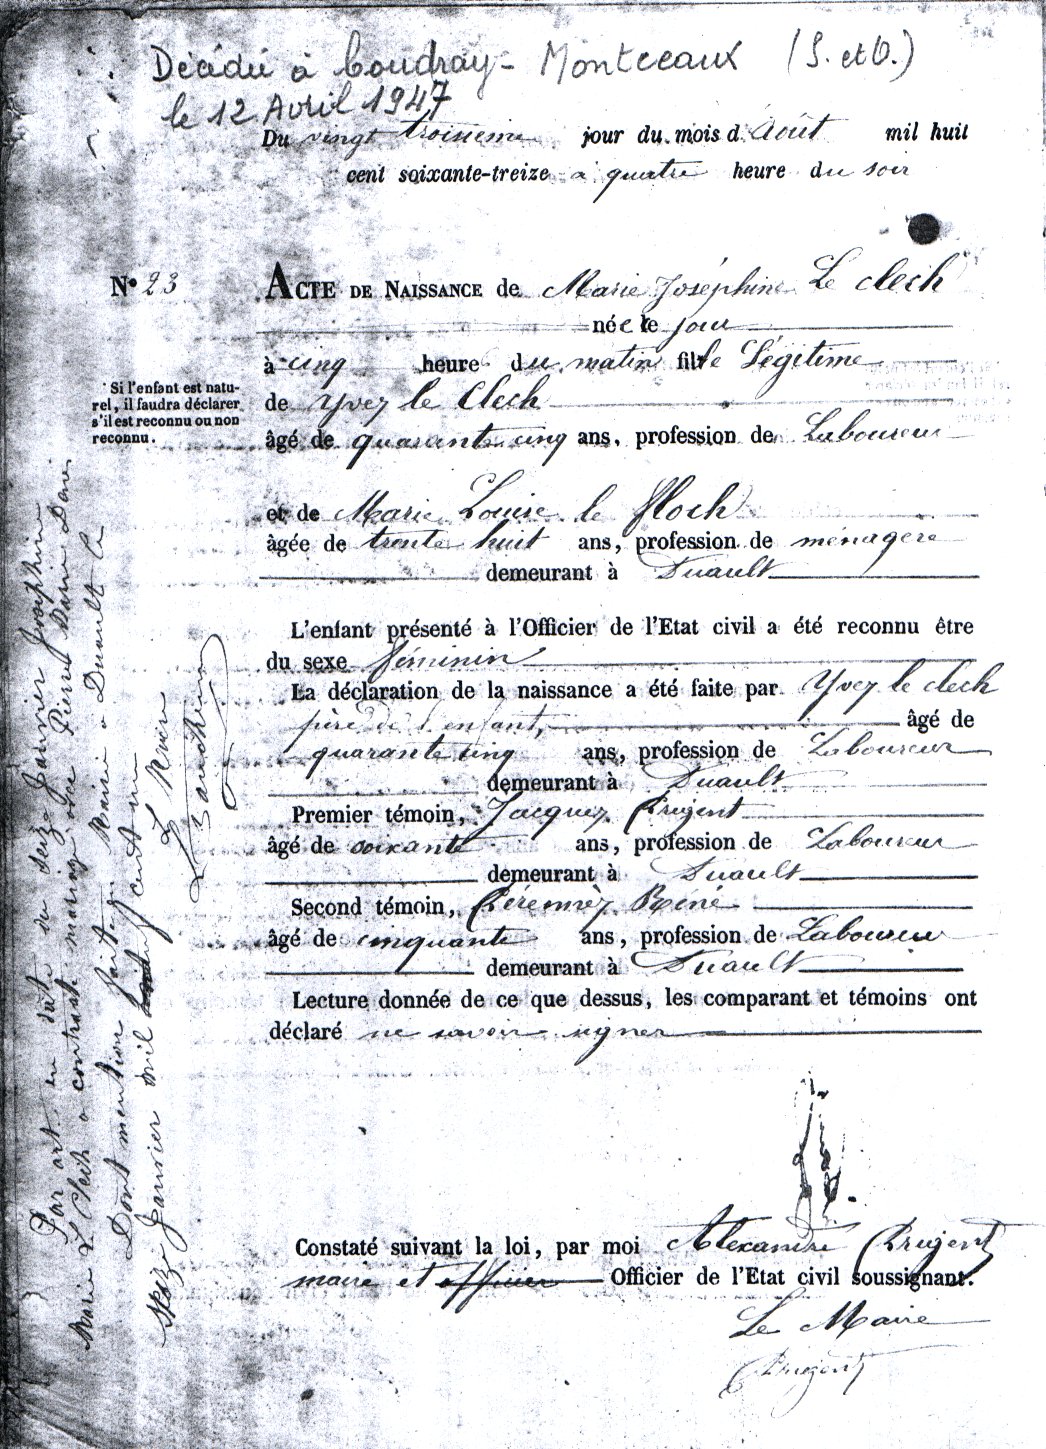 Décédée à Coudray-Montceaux (S. et O.)
le 12 Avril 1947
Du vingt troisieme jour du mois d'Août mil huit
cent soixante-treize à quatre heure du soir
N° 23
ACTE DE NAISSANCE de Marie Joséphine Le Clech
née le jour
à cinq heure du matin fille Légitime
Si l'enfant est natu-
rel, il faudra déclarer
s'il est reconnu ou non
reconnu.
de Yvez le Clech
âgé de quarante cinq ans, profession de Laboureur
et de Marie Louise le floch
âgée de trente huit ans, profession de ménagère
demeurant à Duault
L'enfant présenté à l'Officier de l'Etat civil a été reconnu être
du sexe féminin
La déclaration de la naissance a été faite par Yvez le clech
père de l'enfant, âgé de
quarante cinq ans, profession de Laboureur
demeurant à Duault
Premier témoin, Jacquez Prigent
âgé de soixante ans, profession de Laboureur
demeurant à Duault
Second témoin, René
âgé de cinquante ans, profession de Laboureur
demeurant à Duault
Lecture donnée de ce que dessus, les comparant et témoins ont
déclaré ne savoir signer
Constaté suivant la loi, par moi Alexandre Prigent
maire et officier Officier de l'Etat civil soussignant.
Le Maire
Prigent
Par act en date du seize Janvier Joséphine
Marie Le Clech a contracté mariage avec Pierre Marie
Dont mention faite en Mairie à Duault le
seize Janvier mil cent un
Le Maire